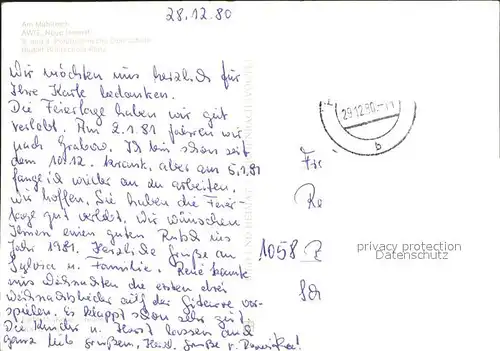 28.12.80
Am Mühleneck
Wir möchten uns herzlich für
Ihre Karte bedanken.
Die Feiertage haben wir gut
verlebt. Am 2.1.81 fahren wir
nach Grabow. Ich bin schon seit
dem 10.12. krank, aber am 5.1.81
fange ich wieder an zu arbeiten.
Wir hoffen, Sie haben die Feier-
tage gut verlebt. Wir wünschen
Ihnen einen guten Rutsch ins
Jahr 1981. Herzliche Grüße an
Sylvia u. Familie. René kann
uns Weihnachten die ersten drei
Weihnachtslieder auf der Gitarre vor-
spielen. Es klappt schon sehr gut.
Die Kinder u. Horst lassen auch
ganz lieb grüßen, Herzl. Grüße v.
29.12.80.-11
b
1058
privacy protection
Datenschutz